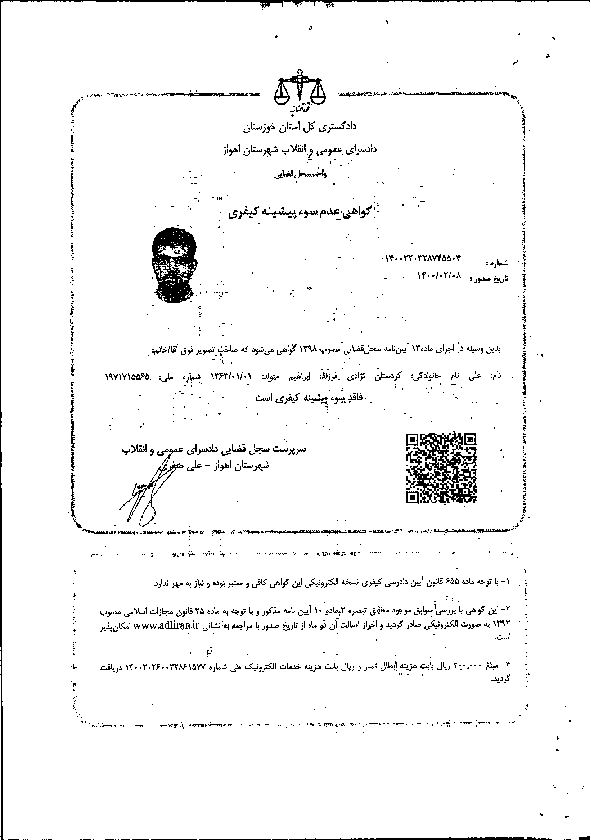 دادگستری کل استان خوزستان
دادسرای عمومی و انقلاب شهرستان اهواز
واحد سجل قضایی
گواهی عدم سوء پیشینه کیفری
شماره:
تاریخ صدور: ۱۴۰۰/۰۲/۰۸
بدین وسیله در اجرای ماده ۱۳ آیین‌نامه سجل قضایی مصوب ۱۳۹۸ گواهی می‌شود که صاحب تصویر فوق آقا/خانم:
نام: علی نام خانوادگی: کردستان نژادی فرزند: ابراهیم متولد: ۱۳۶۳/۰۱/۰۹ شماره ملی: ۱۹۷۱۷۱۵۵۶۵
فاقد سوء پیشینه کیفری است
سرپرست سجل قضایی دادسرای عمومی و انقلاب
شهرستان اهواز - علی
۱- با توجه ماده ۶۵۵ قانون آیین دادرسی کیفری نسخه الکترونیکی این گواهی کافی و معتبر بوده و نیاز به مهر ندارد.
۲- این گواهی با بررسی سوابق موجود مطابق تبصره ۲ ماده ۱۰ آیین نامه مذکور و با توجه به ماده ۲۵ قانون مجازات اسلامی مصوب
۱۳۹۲ به صورت الکترونیکی صادر گردید و احراز اصالت آن تا دو ماه از تاریخ صدور با مراجعه به نشانی www.adliran.ir امکان‌پذیر
است.
۳- مبلغ ریال بابت هزینه ابطال تمبر و ریال بابت هزینه خدمات الکترونیک طی شماره دریافت
گردید.